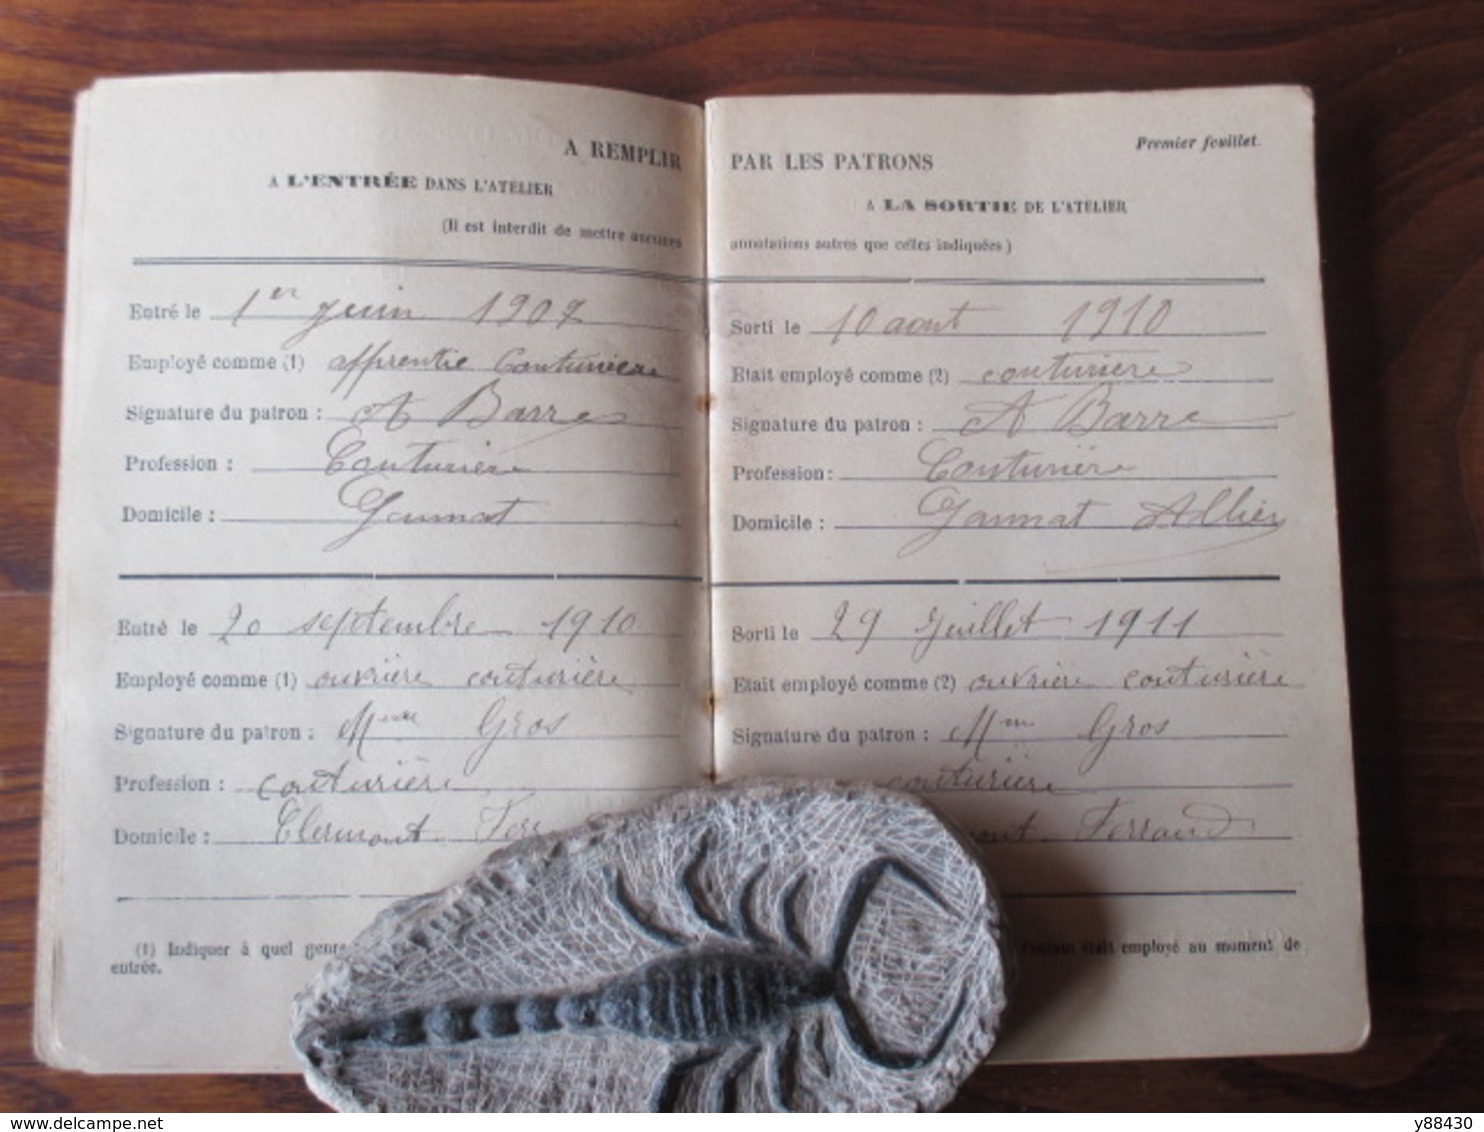 A REMPLIR
A L'ENTRÉE DANS L'ATELIER
(Il est interdit de mettre aucunes
Entré le 1er juin 1907
Employé comme (1) apprentie couturière
Signature du patron : A Barre
Profession : Couturière
Domicile : Gannat
Entré le 20 septembre 1910
Employé comme (1) ouvrière couturière
Signature du patron : Mme Gros
Profession : couturière
Domicile : Clermont Ferr
(1) Indiquer à quel genre
entrée.
Premier feuillet.
PAR LES PATRONS
A LA SORTIE DE L'ATELIER
annotations autres que celles indiquées)
Sorti le 10 aout 1910
Etait employé comme (2) couturière
Signature du patron : A Barre
Profession : Couturière
Domicile : Gannat Allier
Sorti le 29 Juillet 1911
Etait employé comme (2) ouvrière couturière
Signature du patron : Mme Gros
couturière
ont Ferrand
l'enfant était employé au moment de
delcampe.net
y88430